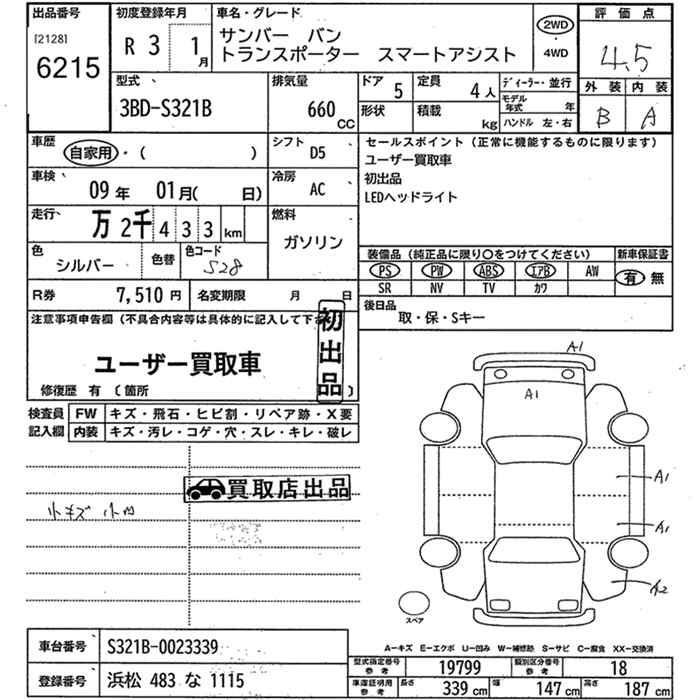 出品番号 初度登録年月 車名・グレード 2WD 評価点
[2128] R 3 1月 サンバー バン 4WD 4.5
6215 トランスポーター スマートアシスト
型式 排気量 ドア 5 定員 4人 ディーラー・並行 外装 内装
3BD-S321B 660 CC 形状 積載 kg モデル年式 年 B A
ハンドル 左・右
車歴 自家用・( ) シフト D5 セールスポイント(正常に機能するものに限ります)
ユーザー買取車
車検 09年 01月( 日) 冷房 AC 初出品
LEDヘッドライト
走行 万2千433km 燃料 ガソリン
色 シルバー 色替 色コード S28 装備品(純正品に限り○をつけてください) 新車保証書
PS PW ABS エアB AW 有 無
SR NV TV カワ
R券 7,510円 名変期限 月 日 後日品
取・保・Sキー
注意事項申告欄(不具合内容等は具体的に記入して下さ
初出品
ユーザー買取車
修復歴 有 〔箇所 〕
検査員記入欄 FW キズ・飛石・ヒビ割・リペア跡・X要
内装 キズ・汚レ・コゲ・穴・スレ・キレ・破レ
A1
A1
買取店出品
A1
小キズ 小凹
A1
A2
スペア
A―キズ E―エクボ U―凹み W―補修跡 S―サビ C―腐食 XX―交換済
車台番号 S321B-0023339
型式指定番号 参考 19799 類別区分番号 参考 18
登録番号 浜松 483 な 1115
車庫証明用 参考 長さ 339cm 幅 147cm 高さ 187cm